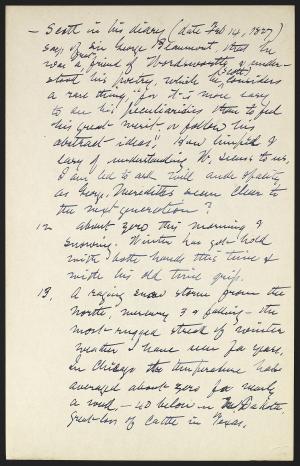 — Scott in his diary (date Feb 14, 1827)
says of Sir George Beaumont, that he
was a great friend of Wordsworth, & under-
stood his poetry, which he (Scott) considers
a rare thing, "for it is more easy
to see his peculiarities than to feel
his great merit, or follow his
abstract ideas". How limpid &
easy of understanding W. seems to us,
I am led to ask will
as George Meredith seem clear to
the next generation?
12 about zero this morning &
snowing. Winter has got hold
with both hands this time &
with his old time grip.
13, A raging snow storm from the
north, mercury 3 & falling — the
most rugged streak of winter
weather I have seen for years.
In Chicago the temperature has
averaged about zero for nearly
a week, — 40 below in Dakota,
great loss of cattle in Texas.